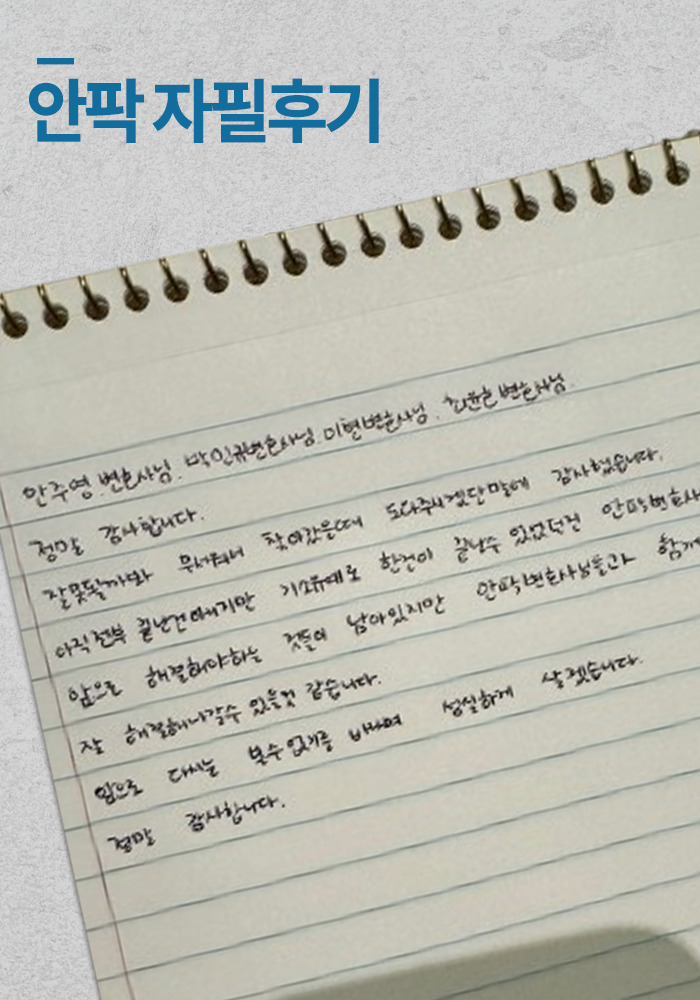 안팍 자필후기
안주영 변호사님. 박인규변호사님. 이현변호사님. 최윤호변호사님.
정말 감사합니다.
잘못될까봐 무서워서 찾아갔을때 도와주시겠단 말에 감사했습니다.
아직 전부 끝난건 아니지만 기소유예로 한건이 끝날수 있었던건 안팍변호사
앞으로 해결해야하는 것들이 남아있지만 안팍변호사님들과 함께
잘 해결해나갈수 있을것 같습니다.
앞으로 다시는 볼수없기를 바라며 성실하게 살겠습니다.
정말 감사합니다.